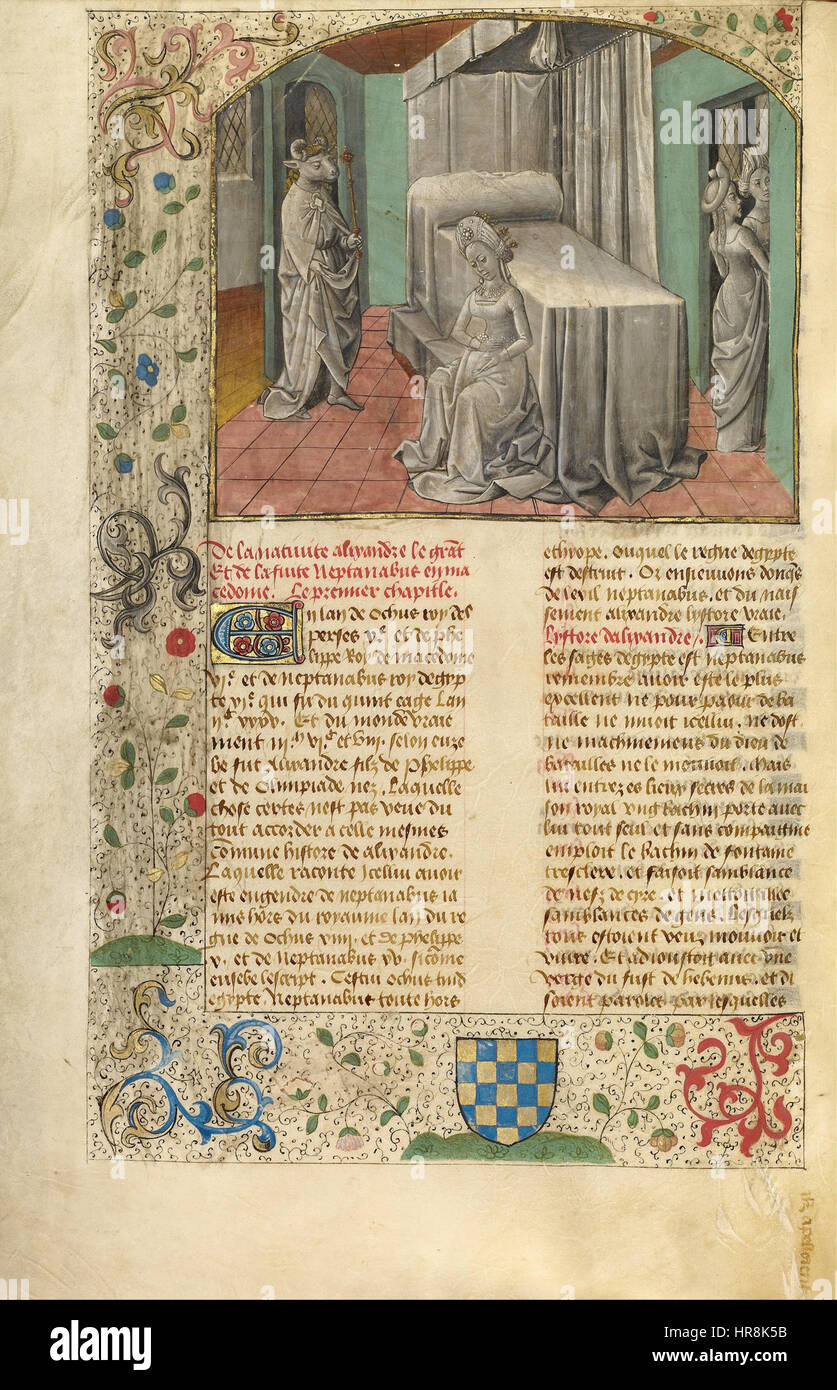 De la nativite alixandre le grant
Et de la fuite Neptanabus en ma
cedome. Le premier chapitle.
En lan de Ochus roy des
perses et de phe
lippe Roy de macedome
et de Neptanabus roy degyp
te qui fu du quint eage Lan
Et du monde vraie
ment selon euze
be fut Alixandre filz de Phelippe
et de Olimpiade nez. Laquelle
chose certes nest pas veue du
tout accorder a celle mesmes
comune histore de alixandre.
Laquelle raconte Icelui avoir
este engendre de neptanabus ia
mis hors du royaume lan du re
gne de Ochus viii. et de phelippe
v. et de Neptanabus xv. sicome
eusebe lescript. Cestui Ochus
egypte Neptanabus toute hors
ethyope. Ouquel le regne degypte
est destruit. Or ensieuvons donqs
de levil neptanabus. et du nais
sement alixandre lystore vraie.
Lystore dalixandre. Entre
les sages degypte est neptanabus
remembre avoir este le plus
excellent ne pour paour de ba
taille ne icellui. ne dost
ne machinemens du dieu de
batailles ne le mouvoit. Mais
lui entrez es lieux secres de la mai
son royal ung bachin porte avec
lui tout seul et sans compaignie
emploit le bachin de fontaine
tresclere. et faisoit samblance
de nefz de cyre. et
samblances de gens. Lesquelz
tous estoient veuz mouvoir et
vivre. Et adioustoit avec une
verge du fust de hebenus. et di
soient paroles par lesquelles
alamy stock photo
HR8K5B
www.alamy.com